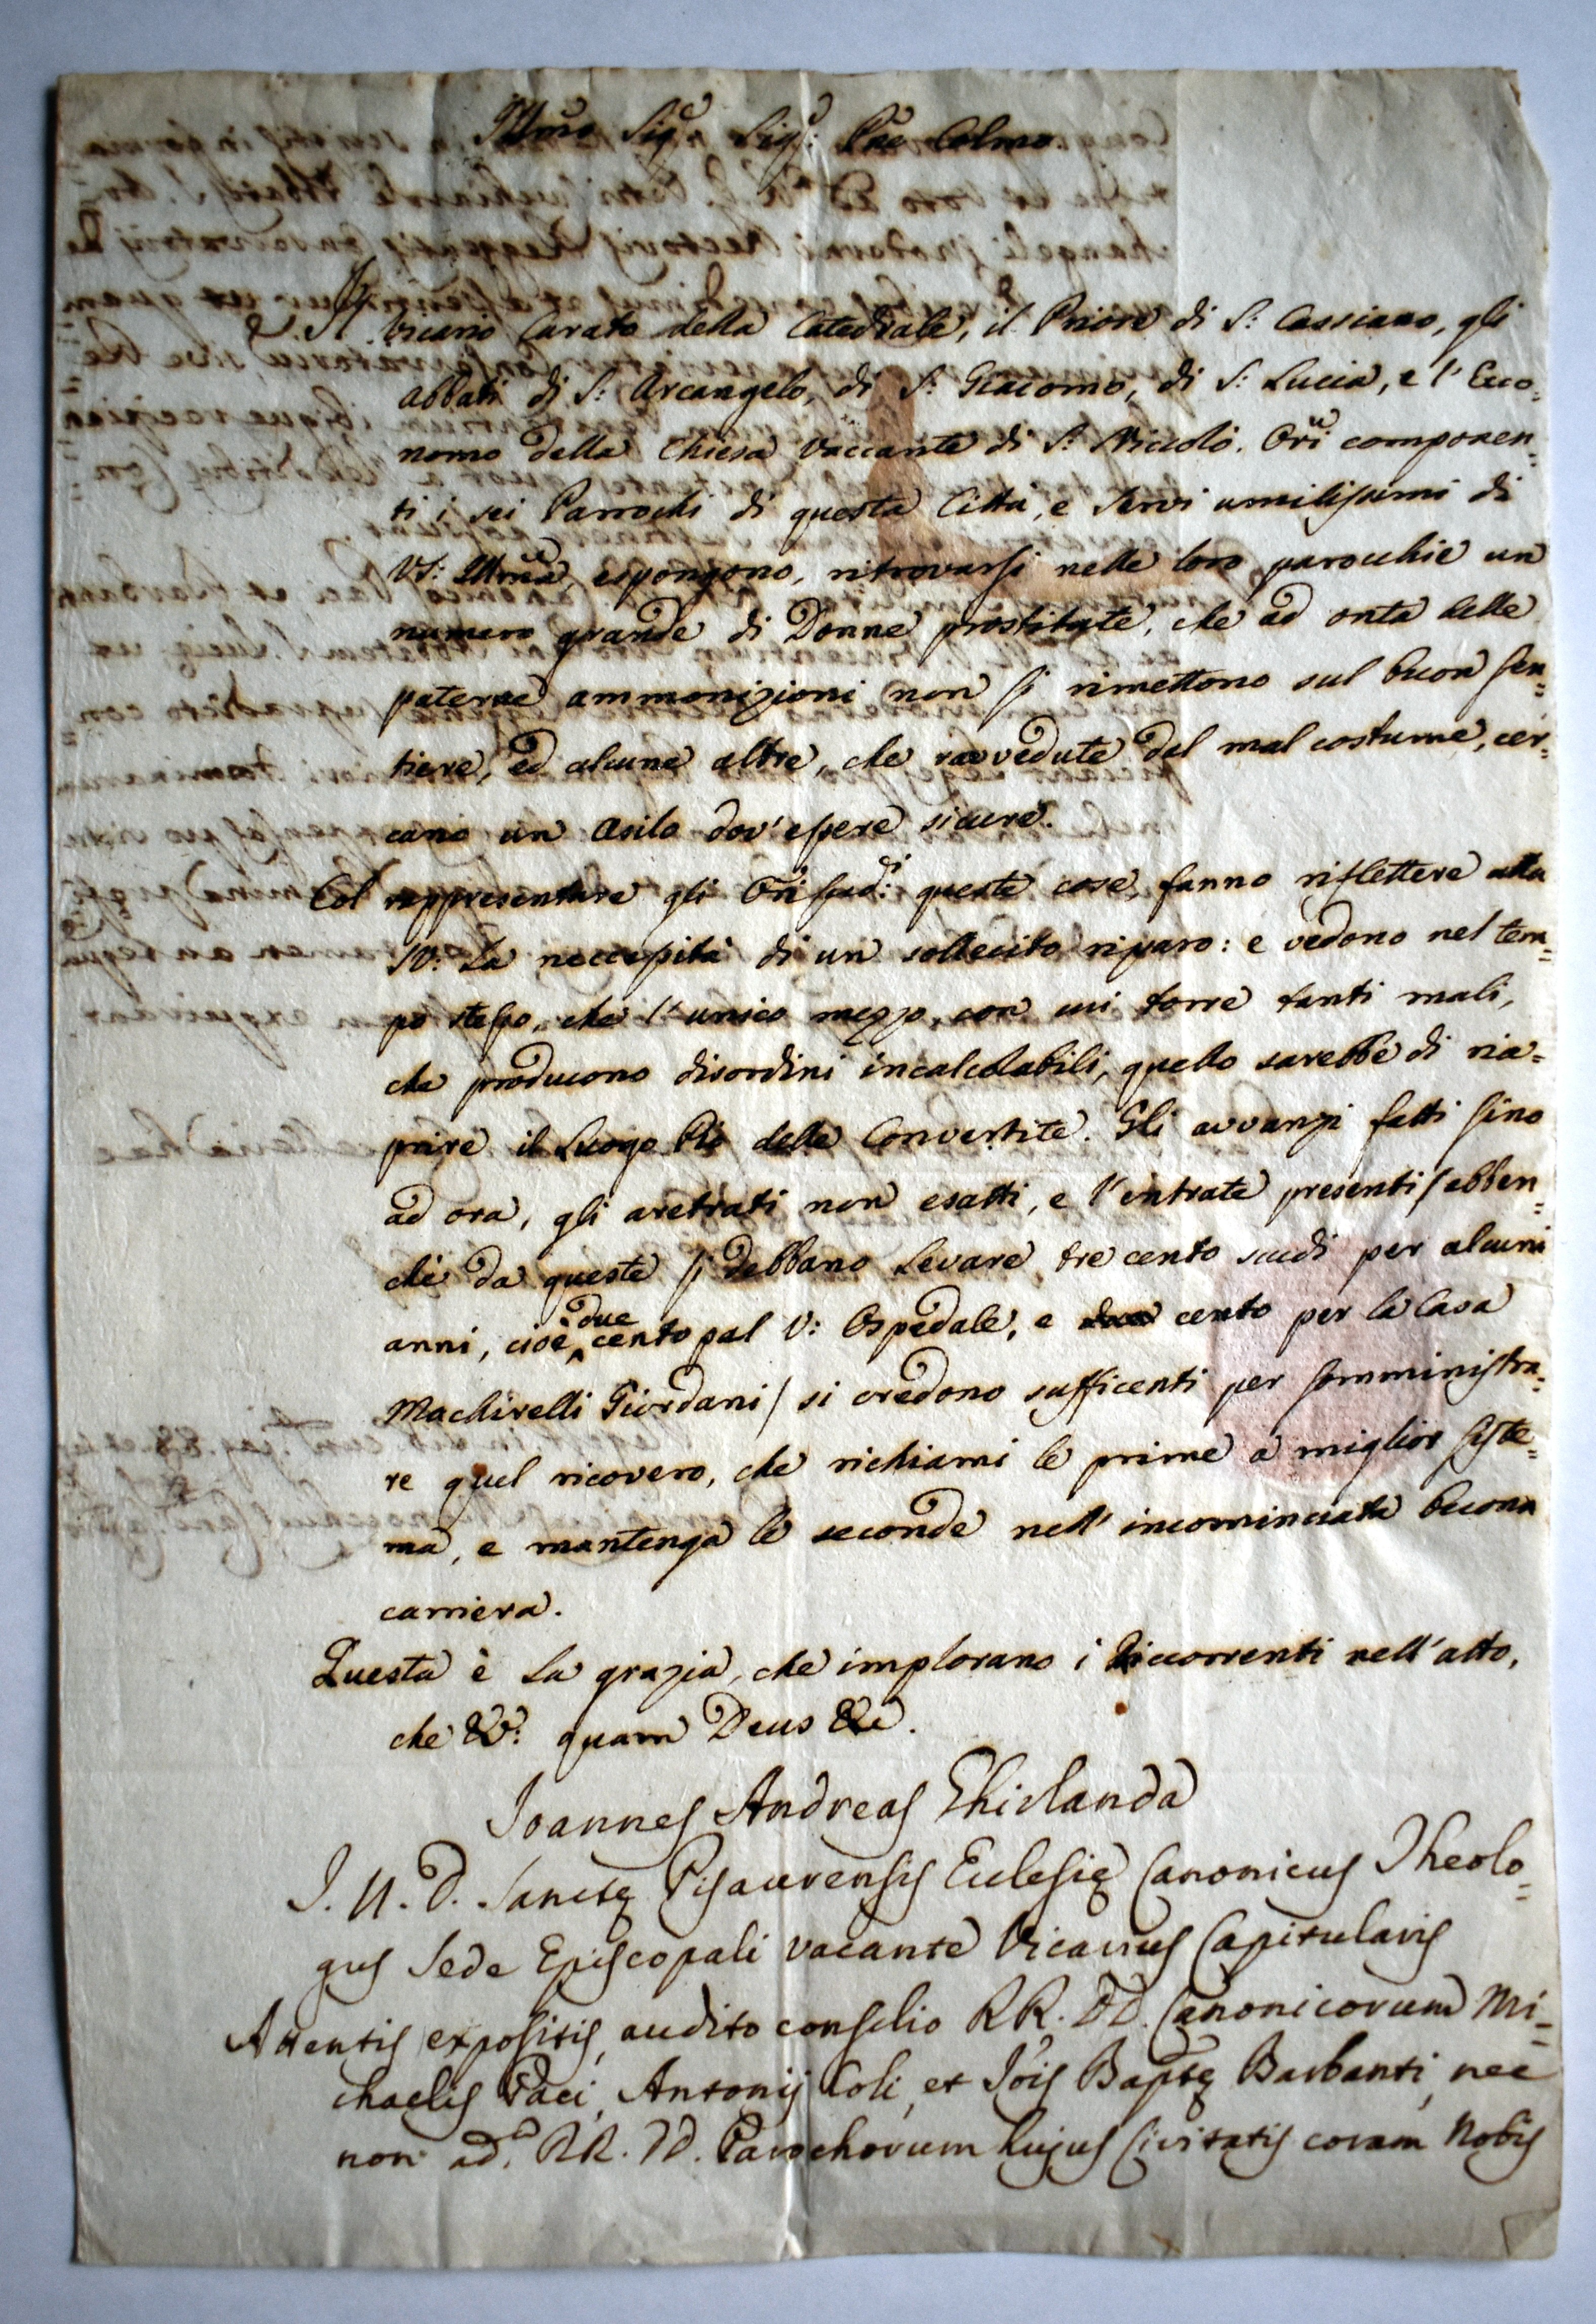 Illmo Sig.e Sig.e Pne Colmo
Il Vicario Curato della Catedrale, il Priore di S: Cassiano, gli
abbati di S: Arcangelo, di S: Giacomo, di S: Lucia, e l' Eco=
nomo della Chiesa Vaccante di S: Niccolò. Ori componen=
ti i sei Parrochi di questa Città, e Servi umilissimi di
VS: Illma, espongono, ritrovarsi nelle loro parocchie un
numero grande di Donne prostitute, che ad onta delle
paterne ammonizioni non si rimettono sul buon sen=
tiere, ed alcune altre, che ravvedute del mal costume, cer=
cano un Asilo dov'essere sicure.
Col rappresentare gli Ori sud.i queste cose, fanno riflettere alla
SV: la neccessità di un sollecito riparo: e vedono nel tem=
po stesso, che l'unico mezzo, con cui torre tanti mali,
che producono disordini incalcolabili, quello sarebbe di ria=
prire il Luogo Pio delle Convertite. Gli avvanzi fatti sino
ad ora, gli aretrati non esatti, e l'entrate presenti /ebben=
chè da queste si debbano levare tre cento scudi per alcuni
anni, cioè due cento pal V: Ospedale, e cento per la Casa
Machirelli Giordani/ si credono sufficenti per somministra=
re quel ricovero, che richiami le prime a miglior siste=
ma, e mantenga le seconde nell' incominciata buona
carriera.
Questa è la grazia, che implorano i Riccorrenti nell'atto,
che &: quam Deus &c.
Joannes Andreas Ghirlanda
J. U. D. Sanctę Pisaurensis Eclesię Canonicus Theolo=
gus Sede Episcopali vacante Vicarius Capitularis
Attentis expositis, audito consilio RR. DD. Canonicorum Mi=
chaelis Paci, Antonij Coli, et Jois Baptę Barbanti, nec
non ad. RR. DD. Parochorum hujus Civitatis coram Nobis